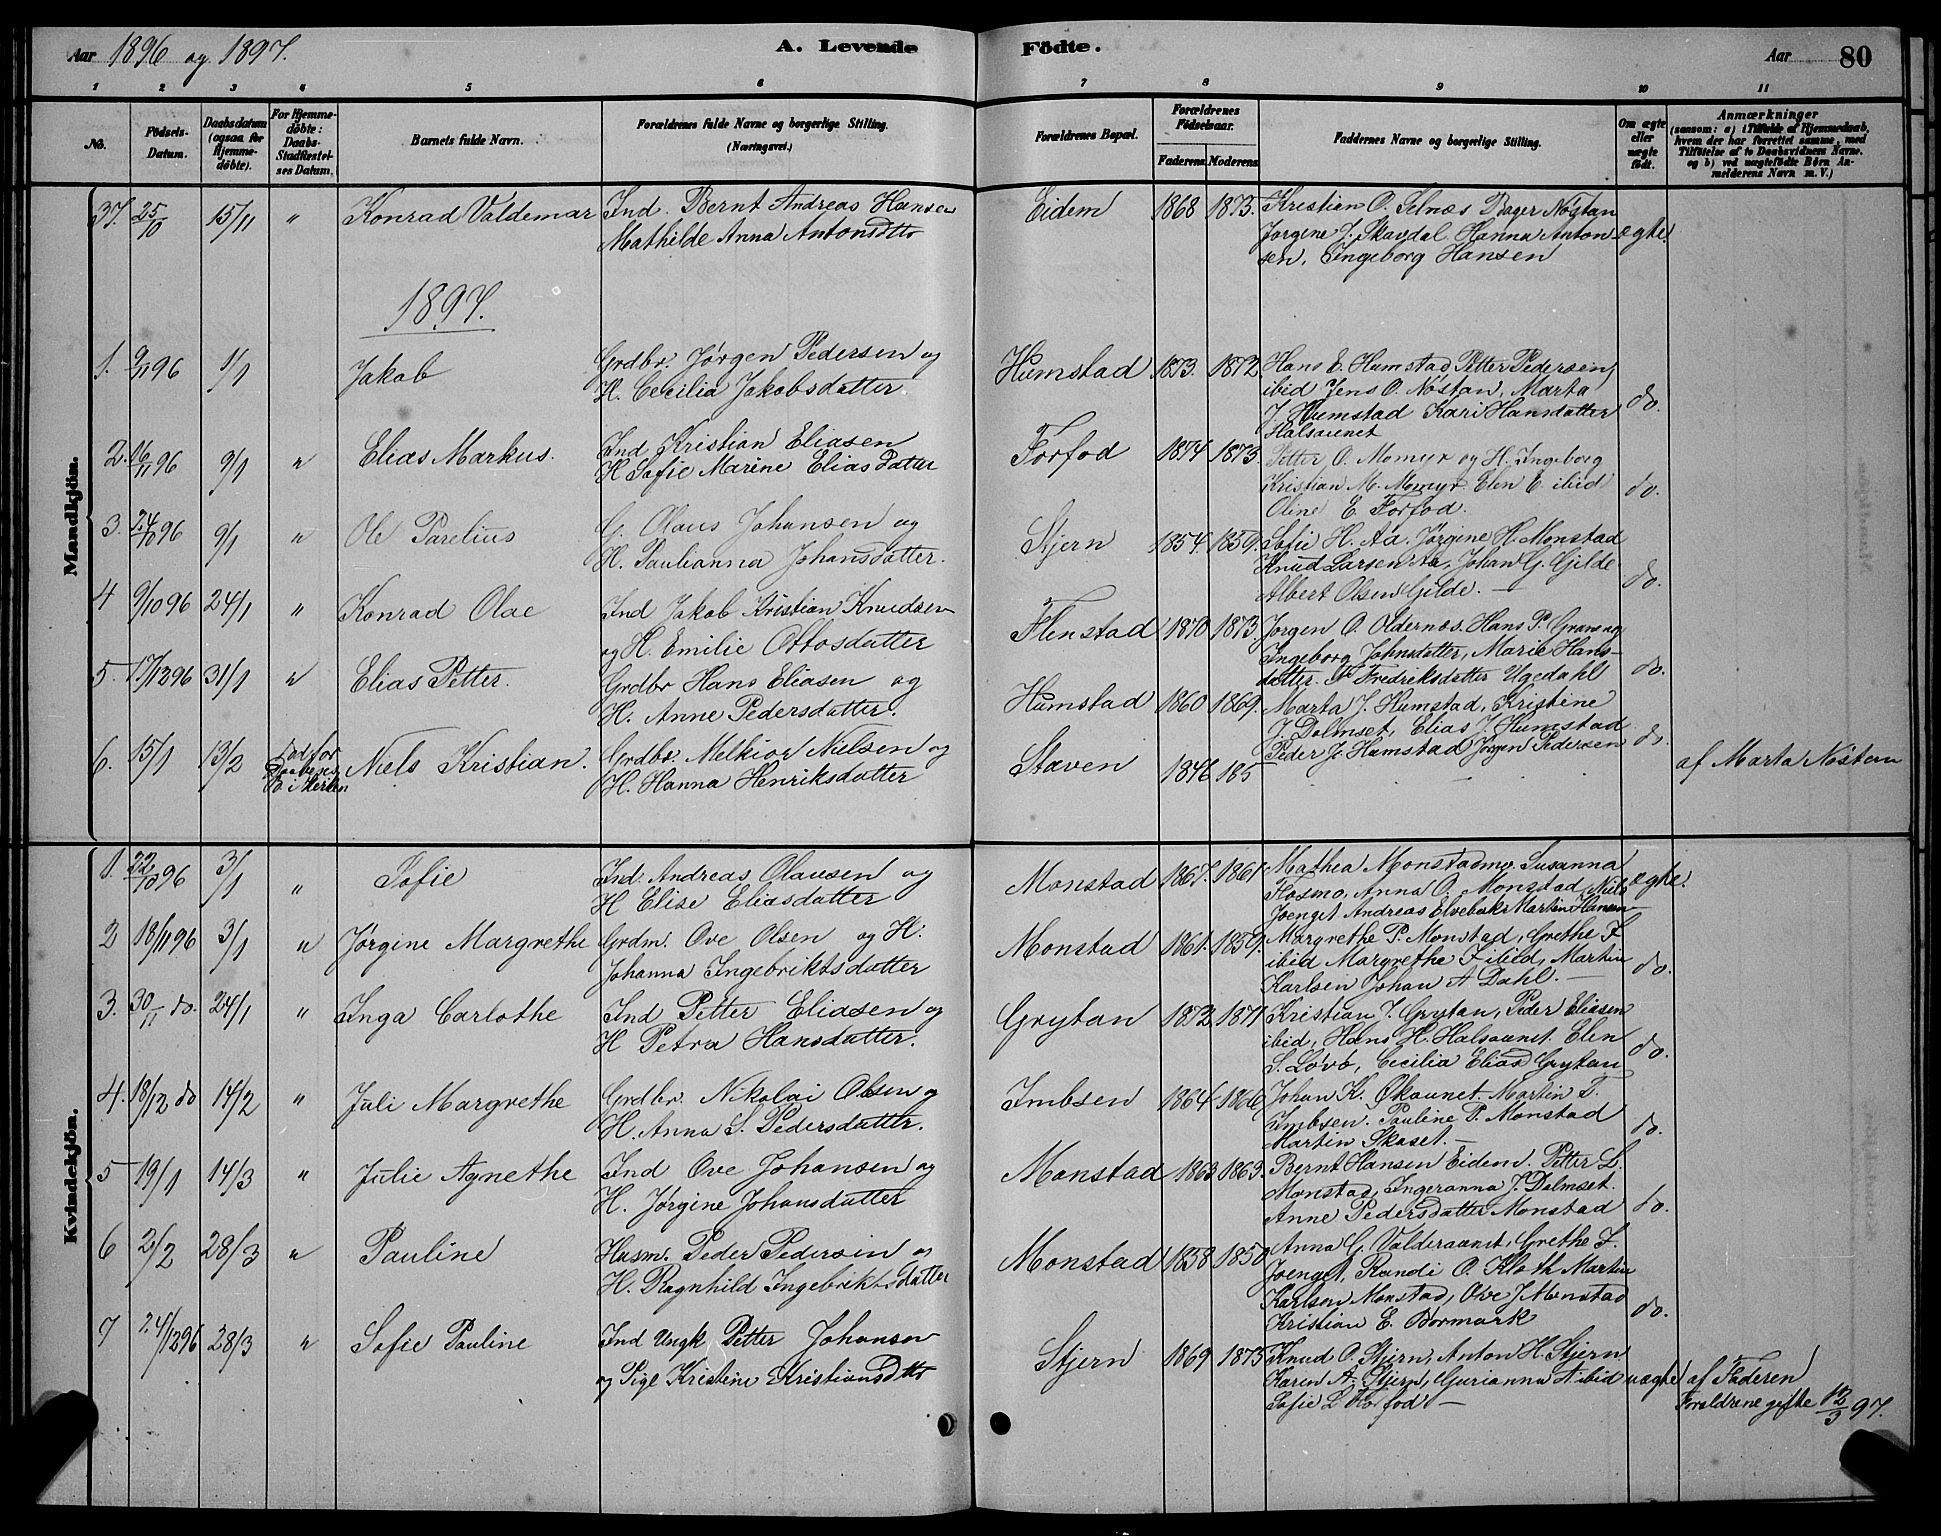 Aar 1896 og 1897. A. Levende Födte. Aar 80
1 2 3 4 5 6 7 8 9 10 11
No. Födsels-Datum. Daabsdatum (ogsaa for Hjemmedöbte). For Hjemmedöbte: Daabs-Stadfæstelses Datum. Barnets fulde Navn. Forældrenes fulde Navne og borgerlige Stilling. (Næringsvei.) Forældrenes Bopæl. Forældrenes Födselsaar. Faderens Moderens Faddernes Navne og borgerlige Stilling. Om ægte eller uægte födt. Anmærkninger (saasom: a) i Tilfælde af Hjemmedaab, hvem der har forrettet samme, med Tilföielse af to Daabsvidners Navne. og b) ved uægtefödte Börn Anmelderens Navn m. V.)
Mandkjön.
37. 25/10 15/11 " Konrad Valdemar Ind. Bernt Andreas Hansen Eidem 1868 1873. Kristian O. Selnæs Bager Nöstan
Mathilde Anna Antonsdtto Jörgine J. Skavdal. Hanna Anton- ægte.
sen, Ingeborg Hansen
1897.
1. 9/11 96 1/1 Jakob Grdbr. Jörgen Pedersen og Humstad 1873. 1872 Hans E. Humstad Petter Pedersen
H. Cecilia Jakobsdatter. ibid Jens O. Nöstan, Marta do.
J. Humstad Kari Hansdatter
Halsaunet
2. 16/11 96 9/1 " Elias Markus. Ind Kristian Eliasen Forfod 1874 1873. Petter O. Momyr og H. Ingeborg
H Sofie Marine Eliasdatter Kristian M. Momyr. Elen E. ibid do.
Oline E. Forfod.
3. 24/10 96 9/1 " Ole Parelius G. Olaus Johansen og Stjern 1854 1859. Sofie H. Aa. Jörgine H. Monstad
H. Paulianna Johansdatter. Knud Larsen Aa, Johan G. Gjilde do.
Albert Olsen Gilde. —
4 9/10 96 24/1 " Konrad Olae Ind Jakob Kristian Knudsen Flenstad 1870 1873. Jörgen O. Oldernæs. Hans P.
og H. Emilie Ottosdatter Ingeborg Johnsdatter, Marie Hans-
datter. Fredriksdatter Ugedahl do.
5. 17/12 96 31/1 " Elias Petter. Grdbr Hans Eliasen og Humstad 1860 1869. Marta J. Humstad, Kristine
H. Anne Pedersdatter. J. Dolmset, Elias J. Humstad do.
Peder J. Humstad Jörgen Pedersen
6. 15/1 13/2 Niels Kristian. Grdbr. Melkior Nielsen og Staven 1846 185 af Marta Nöstan
H. Hanna Henriksdatter
Kvindekjön.
1. 22/10 96 3/1 " Sofie Ind. Andreas Olausen og Monstad 1867. 1861. Mathea Monstadmo. Susanna
H Elise Eliasdatter Flosmo, Anna O. Monstad, Niels ægte.
Joenget Andreas Elvebakk Martin Hansen
2 18/11 96 3/1 " Jörgine Margrethe Grdm. Ove Olsen og H. Monstad 1861. 1859. Margrethe P. Monstad, Grethe F
Johanna Ingebriktsdatter ibid Margrethe F ibid, Martin do.
Karlsen Johan A Dahl. —
3. 30/11 do. 24/1 " Inga Carlothe Ind Petter Eliasen og Grytan 1872 1871 Kristian J. Grytan, Peder Eliasen
H Petra Hansdatter. ibid, Hans H. Halsaunet. Elen do.
S. Lövö, Cecilia Elias Grytan
4. 18/12 do 14/2 " Juli Margrethe Grdbr. Nikolai Olsen og Imbsen 1864 1866 Johan K. Økaunet. Martin F.
H. Anna S. Pedersdatter. Imbsen. Pauline P. Monstad do.
Martin Skaset. —
5 19/1 14/3 " Julie Agnethe Ind Ove Johansen og Monstad 1863 1863. Bernt Hansen Eidem. Petter L.
H. Jörgine Johansdatter Monstad, Ingeranna J. Dolmset.
Anne Pedersdatter Monstad do.
6 2/2 28/3 " Pauline Husm. Peder Pedersen og Monstad 1858 1850 Anna G. Valderaunet, Grethe L.
H. Ragnhild Ingebriktsdatter Joenget, Randi O. Martin
Karlsen Monstad, Ove J Monstad do.
Kristian E. Dörmark
7 24/12 96 28/3 " Sofie Pauline Ind Ungk Petter Johansen Stjern 1869 1875 Knud O. Stjern, Anton H. Stjern
og Pige Kristine Kristiansdtto Karen A. Stjern, Gurianna A ibid uægte af Faderen
Sofie L. Forfod — Foreldrene gifte 12/3 97.